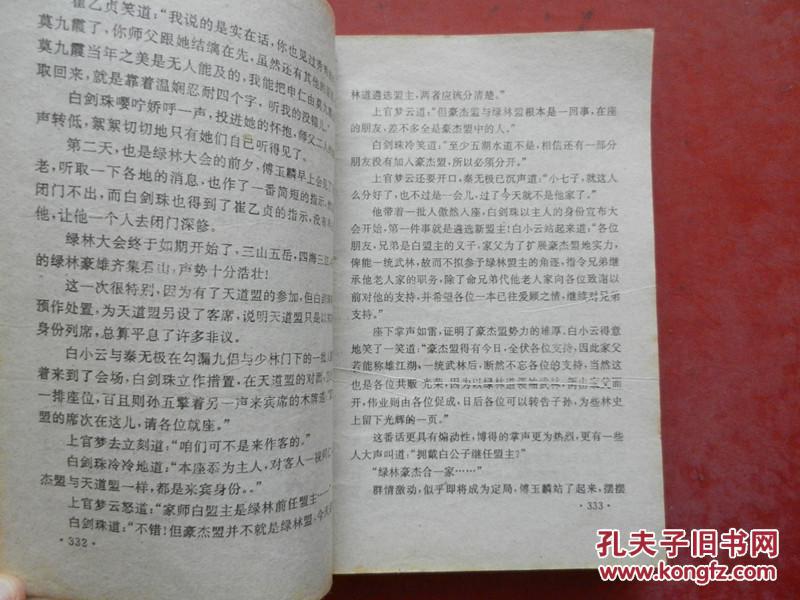 崔乙贞笑道：“我说的是实在话，你也见过
莫九霞了，你师父跟她结缡在先，虽然还有其他的
莫九霞当年之美是无人能及的，我能把申仁由莫九霞
取回来，就是靠着温娴忍耐四个字，听我的没错儿”
白剑珠嘤咛娇呼一声，投进她的怀抱，师父二人
声转低，絮絮切切地只有她们自己听得见了。
第二天，也是绿林大会的前夕，傅玉麟早上会见了
老，听取一下各地的消息，也作了一番简短的指示，他
闭门不出，而白剑珠也得到了崔乙贞的指示，没有
他，让他一个人去闭门深修。
绿林大会终于如期开始了，三山五岳，四海三江
的绿林豪雄齐集君山，声势十分浩壮！
这一次很特别，因为有了天道盟的参加，但白剑
预作处置，为天道盟另设了客席，说明天道盟只是以
身份列席，总算平息了许多非议。
白小云与秦无极在勾漏九侣与少林门下的一批人
着来到了会场，白剑珠立作措置，在天道盟的对面
一排座位，百且则孙五擎着另一声来宾席的木牌道：“
盟的席次在这儿，请各位就座。”
上官梦去立刻道：“咱们可不是来作客的。”
白剑珠冷冷地道：“本座忝为主人，对客人一视同仁
杰盟与天道盟一样，都是来宾身份。。”
上官梦云怒道：“家师白盟主是绿林前任盟主……
白剑珠道：“不错！但豪杰盟并不就是绿林盟，今天
·332·
林道遴选盟主，两者应该分清楚。”
上官梦云道：“但豪杰盟与绿林盟根本是一回事，在座
的朋友，差不多全是豪杰盟中的人。”
白剑珠冷笑道：“至少五期水道不是，相信还有一部分
朋友没有如人豪杰盟，所以必须分开。”
上官梦云还要开口，秦无极已沉声道：“小七子，就这人
么分好了，也不过是一会儿，过了今天就不是他家了。”
他带着一批人傲然人座，白剑珠以主人的身份宣布大
会开始，第一件事就是遴选新盟主！白小云站起来道：“各位
朋友，兄弟是白盟主的义子，家父为了扩展豪杰盟地实力，
俾能一统武林，故而不拟参于绿林盟主的角逐，指令兄弟继
承他老人家的职务，除了命兄弟代他老人家向各位致谢以
前对他的支持，并希望各位一本已往爱顾之情，继续对兄弟
支持。”
座下掌声如雷，证明了豪杰盟势力的雄厚。白小云得意
地笑了一笑道：“豪杰盟得有今日，全伏各位支持，因此家父
若能称雄江湖，一统武林后，断然不忘各位的支持，当然这
也是各位共贩 光荣，因为以绿林道
开，伟业则由各位促成，日后各位可以转告子孙，为些林史
上留下光辉的一页。”
这番话更具有煽动性，博得的掌声更为热烈，更有一些
人大声叫道：“拥戴白公子继任盟主？”
“绿林豪杰合一家……”
群情激动，似乎即将成为定局，傅玉麟站了起来，摆摆
·333·
孔夫子旧书网
www.kongfz.com